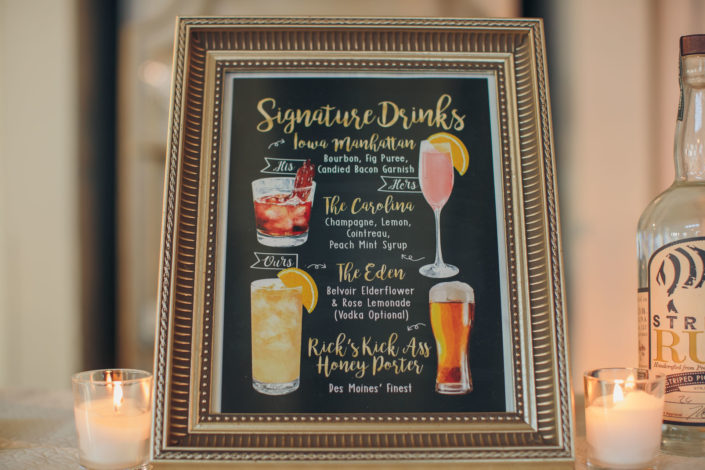 Signature Drinks
Iowa Manhattan
Bourbon, Fig Puree,
Candied Bacon Garnish
His
Hers
The Carolina
Champagne, Lemon,
Cointreau,
Peach Mint Syrup
Ours
The Eden
Belvoir Elderflower
& Rose Lemonade
(Vodka Optional)
Rick's Kick Ass
Honey Porter
Des Moines' Finest
STR
RU
Handcrafted from
STRIPED PI